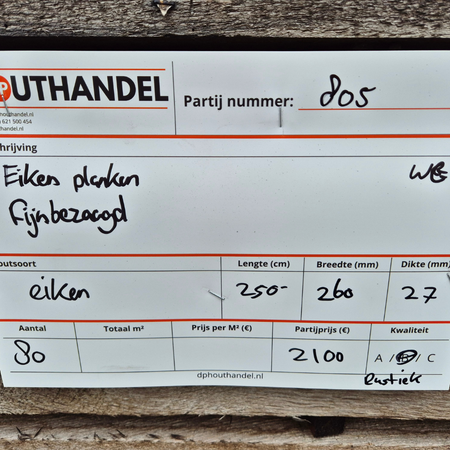 OUTHANDEL
Partij nummer: 805
houthandel.nl
621 500 454
thandel.nl
hrijving
Eiken planken
Fijnbezaagd
outsoort Lengte (cm) Breedte (mm) Dikte (mm)
eiken 250- 260 27
Aantal Totaal m² Prijs per M² (€) Partijprijs (€) Kwaliteit
80 2100 A / B / C
Rustiek
dphouthandel.nl